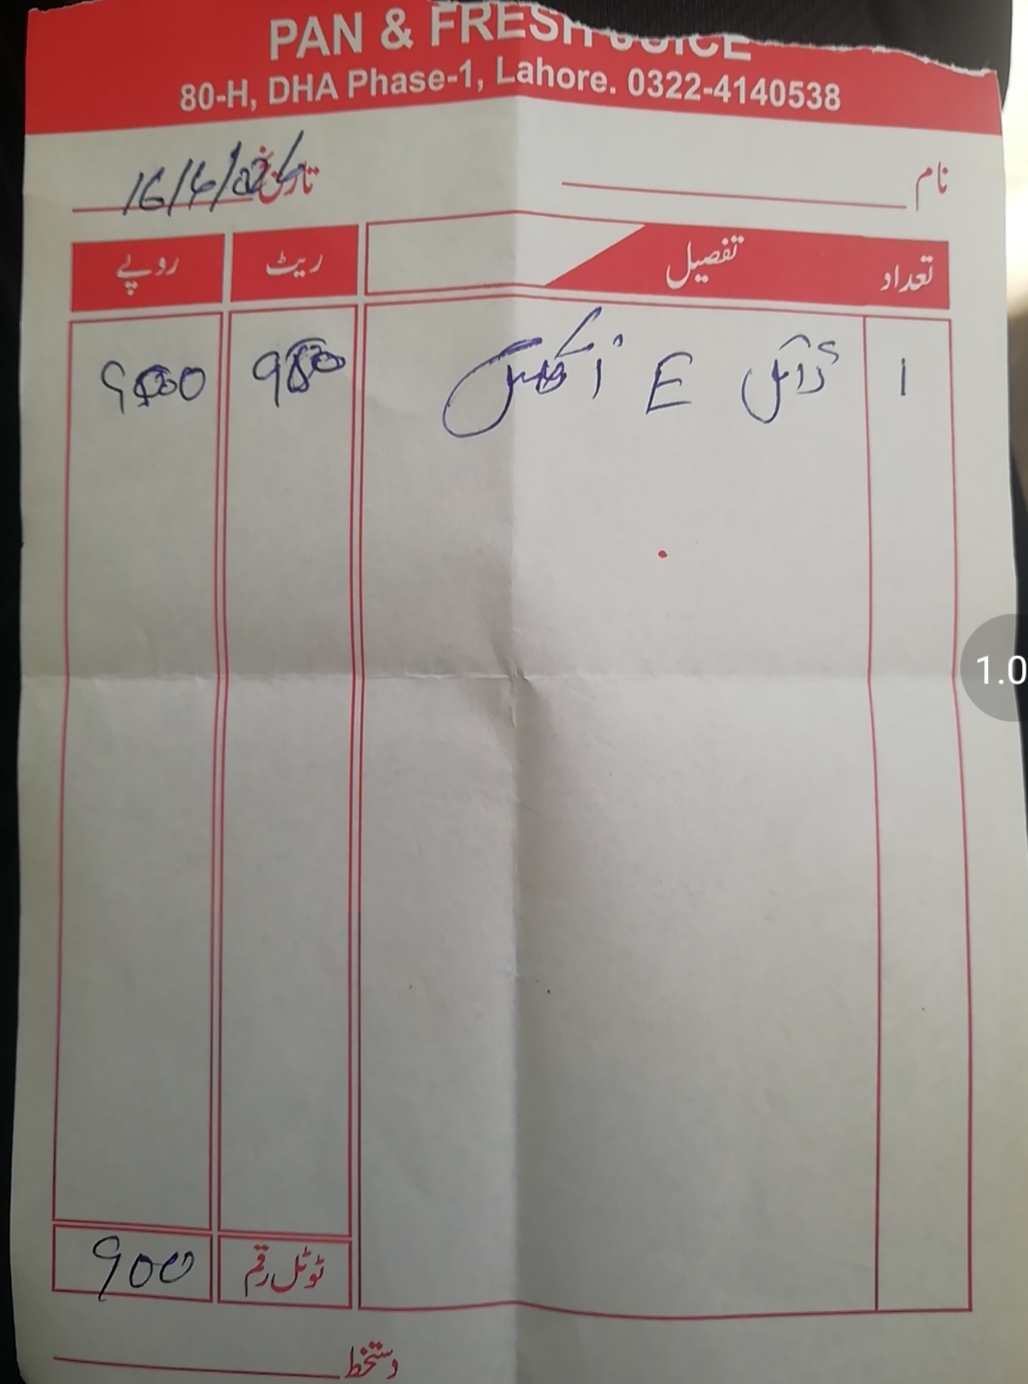 PAN & FRESH JUICE
80-H, DHA Phase-1, Lahore. 0322-4140538
نام تاریخ 16/4/024
تعداد تفصیل ریٹ روپے
1 ڈائل E
ٹوٹل رقم 900
دستخط
1.0